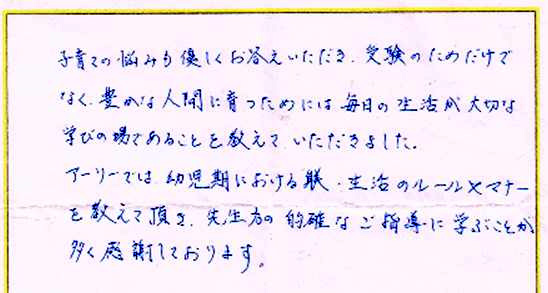 子育ての悩みも優しくお答えいただき、受験のためだけで
なく、豊かな人間に育つためには毎日の生活が大切な
学びの場であることを教えて、いただきました。
アーリーでは、幼児期における躾・生活のルールとマナー
を教えて頂き、先生方の的確なご指導に学ぶことが
多く感謝しております。